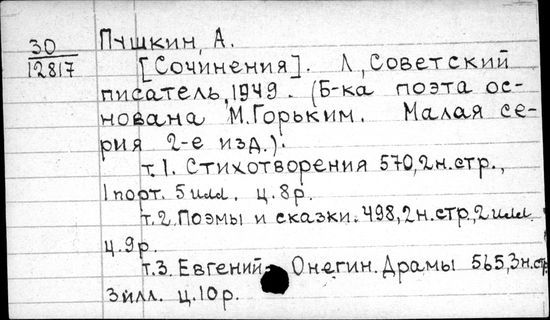 30
12817
Пушкин, А.
[Сочинения]. Л, Советский
писатель, 1949. (Б-ка поэта ос-
нована М.Горьким. Малая се-
рия 2-е изд.).
т.1. Стихотворения 570,2н.стр.,
1порт. 5илл. ц.8р.
т.2.Поэмы и сказки.498,2н.стр,2илл.
ц.9р.
т.3. Евгений Онегин.Драмы 565,3н.стр
3илл. ц.10р.